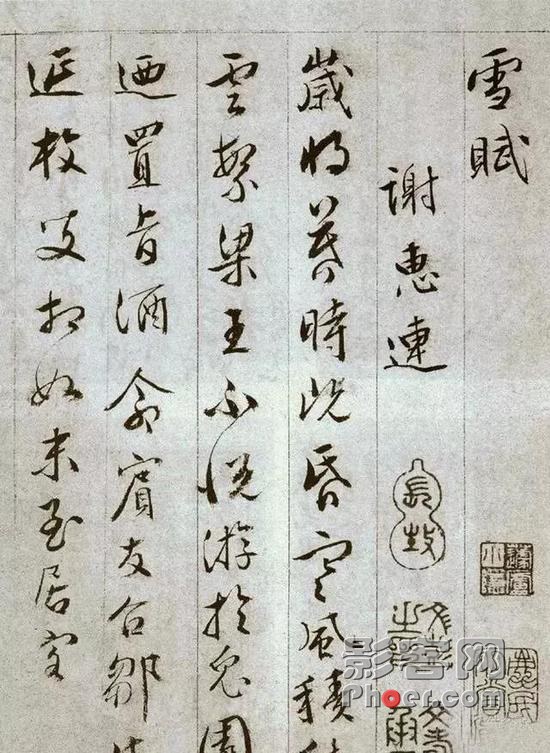 雪賦
謝惠連
歲將暮時既昏寒風積
雲繁梁王不悅游於兔園
迺置旨酒命賓友召鄒
延枚叟相如末至居客
影客网
Phoer.com